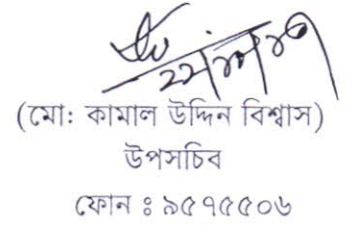 (মো: কামাল উদ্দিন বিশ্বাস)
উপসচিব
ফোন ঃ ৯৫৭৫৫০৬